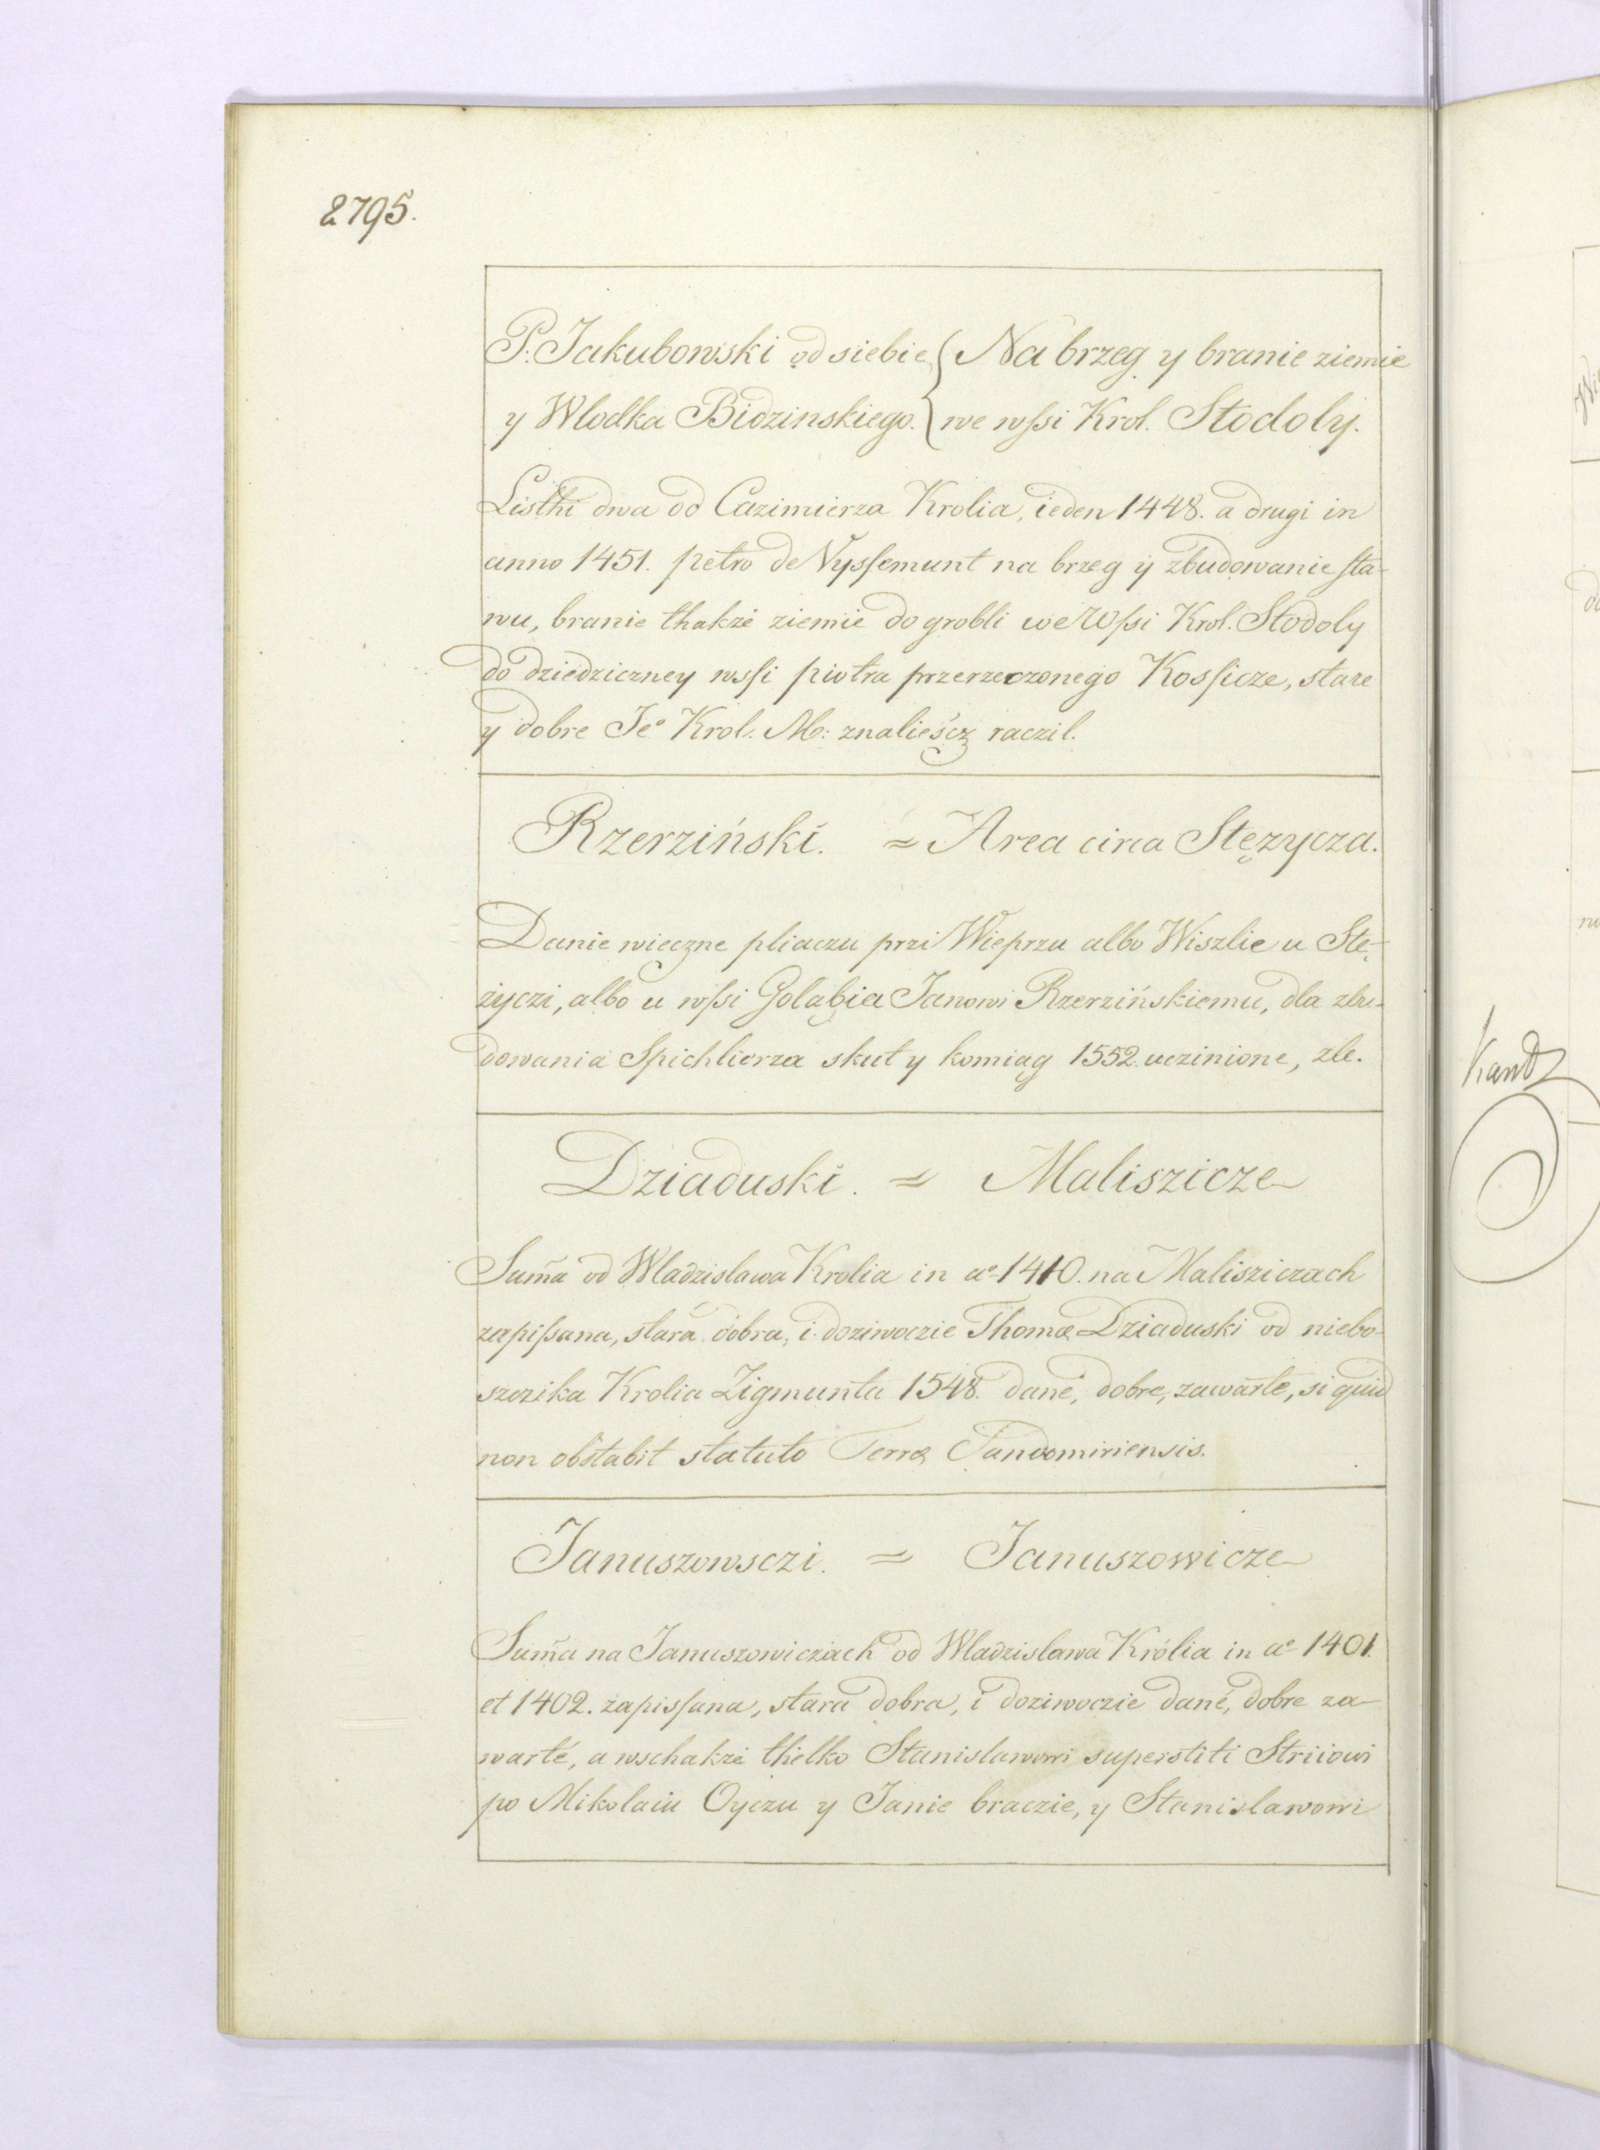 2795.
P. Jakubowski od siebie { Na brzeg y branie ziemie
y Wlodka Bidzinskiego. { we wſsi Krol. Stodoly.
Listhi dwa od Cazimierza Krolia, ieden 1448. a drugi in
anno 1451. petro de Nysſemunt na brzeg y zbudowanie sta-
wu, branie thakze ziemie do grobli we Wſsi Krol. Stodoly
do dziedziczney wsſi piotra przerzeczonego Kosſicze, stare
y dobre Je° Krol. M: znaliescz raczil.
Rzerziński. = Area circa Stęzycza.
Danie wieczne pliaczu przi Wieprzu albo Wiszlie u Stę-
życzi, albo u wſsi Goląbia Janowi Rzerzińskiemu, dla zbu-
dowania Spichlierza skut y komiag 1552. uczinione, zle.
Dziaduski. = Maliszicze
Sum̃a od Wladzislawa Krolia in a° 1410. na Malisziczach
zapiſsana, stara dobra, i doziwoczie Thomæ Dziaduski od niebo-
szczika Krolia Zigmunta 1548. dané, dobre, zawarte, si quid
non obstabit statuto Terræ Sandomiriensis.
Januszowsczi. = Januszowicze
Sum̃a na Januszowiczach od Wladzislawa Królia in a° 1401.
et 1402. zapisſana, stara dobra, i doziwoczie dané, dobre za-
warté, a wschakze thielko Stanislawowi superstiti Striiowi
po Mikolaiu Oyczu y Janie braczie, y Stanislawowi